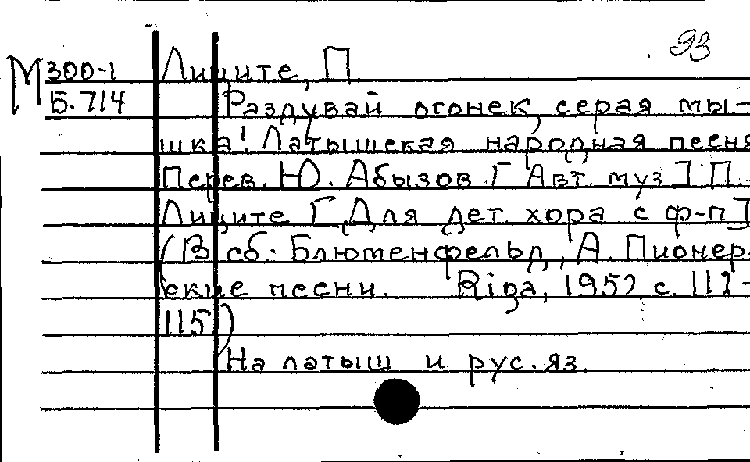 93
М 300-1 Лиците, П
Б. 714 Раздувай огонек, серая мы-
шка! Латышская народная песня
Перев. Ю. Абызов. [Авт муз] П.
Лиците [Для дет. хора с ф-п]
(В сб.: Блюменфельд, А. Пионер-
ские песни. Riga, 1952 с. 112-
115)
На латыш и рус. яз.